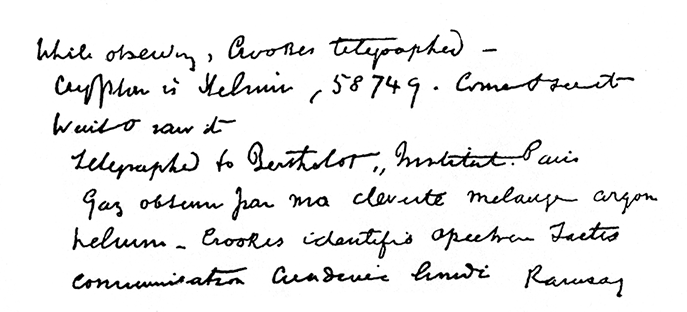 While observing, Crookes telegraphed –
Crypton is Helium, 58749. Come & see it
Went & saw it
Telegraphed to Berthelot,, Institut. Paris
Gaz obtenu par moi cleveite melange argon
helium – Crookes identifie spectre. Faites
communication Academie lundi Ramsay